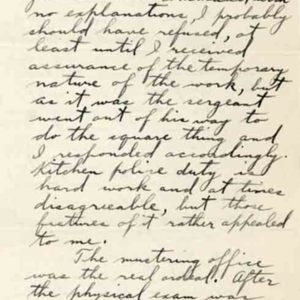 no explanations, I probably
should have refused, at
least until I received
assurance of the temporary
nature of the work, but
as it was the sergeant
went out of his way to
do the square thing and
I responded accordingly.
Kitchen police duty is
hard work and at times
disagreeable, but those
features of it rather appealed
to me.
The mustering office
was the real ordeal. After
the physical exam was